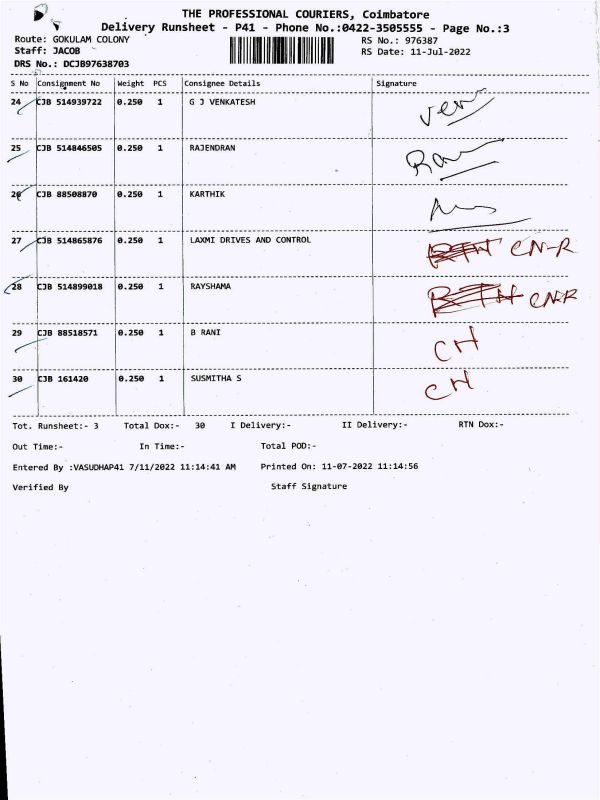 THE PROFESSIONAL COURIERS, Coimbatore
Delivery Runsheet - P41 - Phone No.:0422-3505555 - Page No.:3
Route: GOKULAM COLONY RS No.: 976387
Staff: JACOB RS Date: 11-Jul-2022
DRS No.: DCJB97638703
S No Consignment No Weight PCS Consignee Details Signature
24 CJB 514939722 0.250 1 G J VENKATESH
25 CJB 514846505 0.250 1 RAJENDRAN
26 CJB 88508870 0.250 1 KARTHIK
27 CJB 514865876 0.250 1 LAXMI DRIVES AND CONTROL CN-R
28 CJB 514899018 0.250 1 RAYSHAMA CNR
29 CJB 88518571 0.250 1 B RANI CH
30 CJB 161420 0.250 1 SUSMITHA S CH
Tot. Runsheet:- 3 Total Dox:- 30 I Delivery:- II Delivery:- RTN Dox:-
Out Time:- In Time:- Total POD:-
Entered By :VASUDHAP41 7/11/2022 11:14:41 AM Printed On: 11-07-2022 11:14:56
Verified By Staff Signature